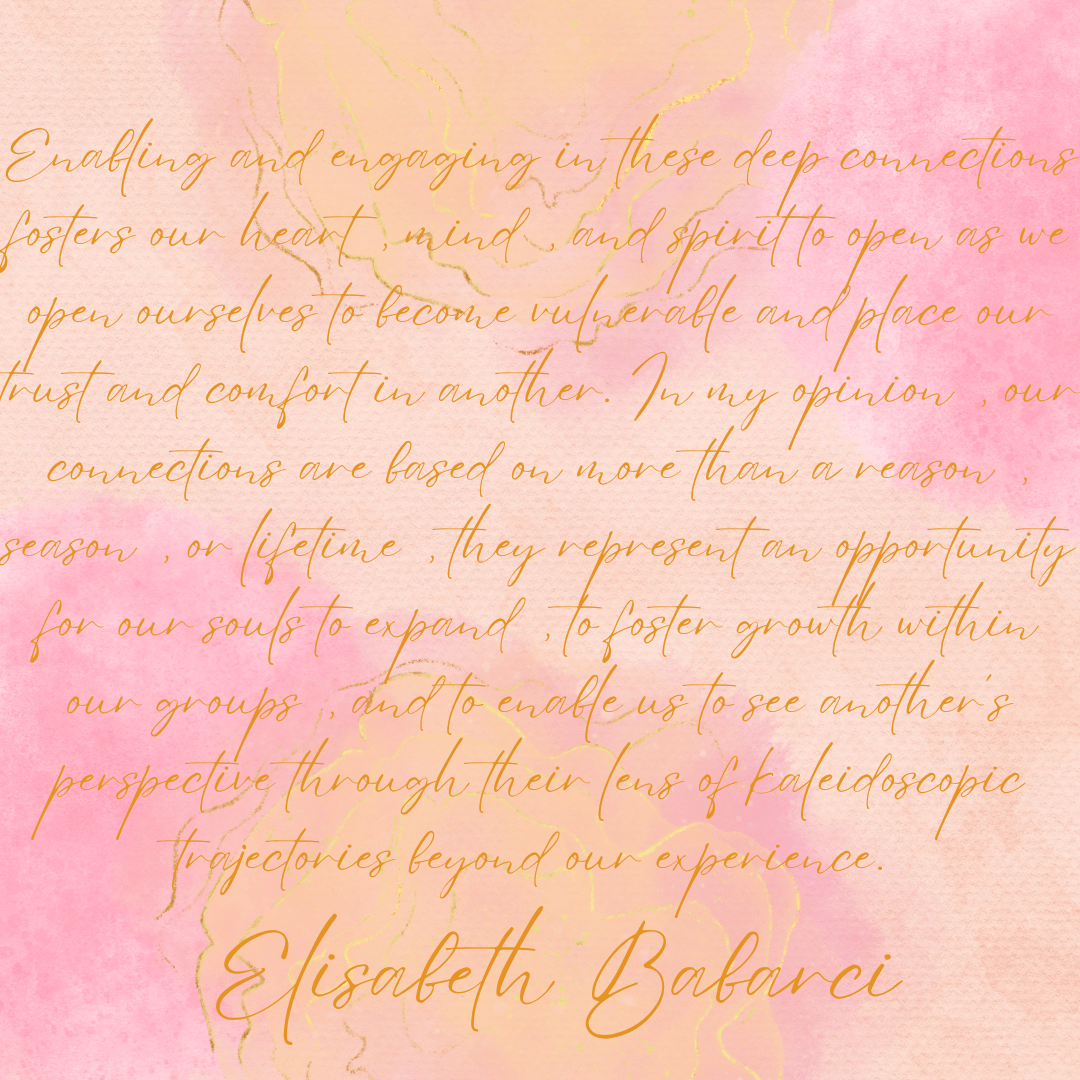 Enabling and engaging in these deep connections
fosters our heart , mind , and spirit to open as we
open ourselves to become vulnerable and place our
trust and comfort in another. In my opinion , our
connections are based on more than a reason ,
season , or lifetime , they represent an opportunity
for our souls to expand , to foster growth within
our groups , and to enable us to see another's
perspective through their lens of kaleidoscopic
trajectories beyond our experience.
Elisabeth Babarci